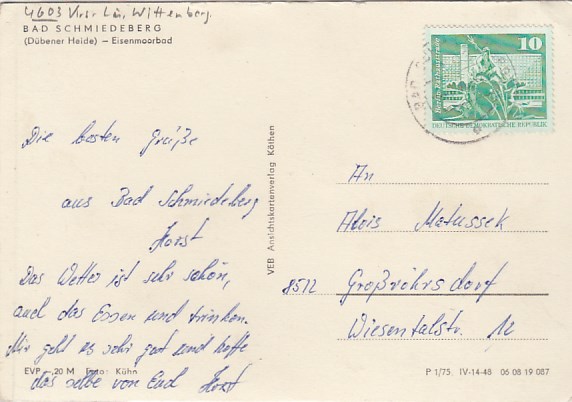 4603 Krs. Lu. Wittenberg.
BAD SCHMIEDEBERG
(Dübener Heide) — Eisenmoorbad
10
DEUTSCHE DEMOKRATISCHE REPUBLIK
Die besten Grüße
aus Bad Schmiedeberg
Horst
Das Wetter ist sehr schön,
auch das Essen und trinken.
Mir geht es sehr gut und hoffe
das selbe von Euch Horst
VEB Ansichtskartenverlag Köthen
An
Alois Matussek
8512 Großröhrsdorf
Wiesentalstr. 12
EVP -,20 M Foto: Kühn
P 1/75 IV-14-48 06 08 19 087